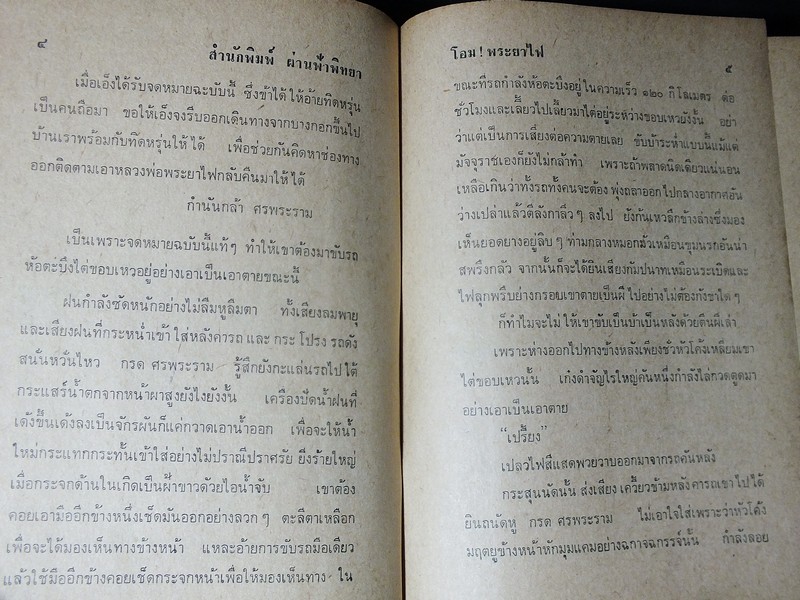 ๔
สำนักพิมพ์ ผ่านฟ้าพิทยา
เมื่อเอ็งได้รับจดหมายฉะบับนี้ ซึ่งข้าได้ให้อ้ายทิดหรุ่น
เป็นคนถือมา ขอให้เอ็งจงรีบออกเดินทางจากบางกอกขึ้นไป
บ้านเราพร้อมกับทิดหรุ่นให้ได้ เพื่อช่วยกันคิดหาช่องทาง
ออกติดตามเอาหลวงพ่อพระยาไฟกลับคืนมาให้ได้
กำนันกล้า ศรพระราม
เป็นเพราะจดหมายฉบับนี้แท้ๆ ทำให้เขาต้องมาขับรถ
ห้อตะบึงไต่ขอบเหวอยู่อย่างเอาเป็นเอาตายขณะนี้
ฝนกำลังซัดหนักอย่างไม่ลืมหูลืมตา ทั้งเสียงลมพายุ
และเสียงฝนที่กระหน่ำเข้าใส่หลังคารถ และ กระ โปรง รถดัง
สนั่นหวั่นไหว กรด ศรพระราม รู้สึกยังกะแล่นรถไปใต้
กระแสร์น้ำตกจากหน้าผาสูงยังไงยังงั้น เครื่องปัดน้ำฝนที่
เด้งขึ้นเด้งลงเป็นจักรผันก็แค่กวาดเอาน้ำออก เพื่อจะให้น้ำ
ใหม่กระแทกกระทั้นเข้าใส่อย่างไม่ปราณีปราศรัย ยิ่งร้ายใหญ่
เมื่อกระจกด้านในเกิดเป็นฝ้าขาวด้วยไอน้ำจับ เขาต้อง
คอยเอามืออีกข้างหนึ่งเช็ดมันออกอย่างลวกๆ ตะลีตาเหลือก
เพื่อจะได้มองเห็นทางข้างหน้า แหละอ้ายการขับรถมือเดียว
แล้วใช้มืออีกข้างคอยเช็ดกระจกหน้าเพื่อให้มองเห็นทาง ใน
โอม! พระยาไฟ
๕
ขณะที่รถกำลังห้อตะบึงอยู่ในความเร็ว ๑๒๐ กิโลเมตร ต่อ
ชั่วโมงและเลี้ยวไปเลี้ยวมาไต่อยู่ระหว่างขอบเหวยังงั้น อย่า
ว่าแต่เป็นการเสี่ยงต่อความตายเลย ขับบ้าระห่ำแบบนี้แม้แต่
มัจจุราชเองก็ยังไม่กล้าทำ เพราะถ้าพลาดนิดเดียวแน่นอน
เหลือเกินว่าทั้งรถทั้งคนจะต้อง พุ่งถลาออกไปกลางอากาศอัน
ว่างเปล่าแล้วตีลังกาลิ่วๆ ลงไป ยังก้นเหวลึกข้างล่างซึ่งมอง
เห็นยอดยางอยู่ลิบๆ ท่ามกลางหมอกมัวเหมือนขุมนรกอันน่า
สพรึงกลัว จากนั้นก็จะได้ยินเสียงกัมปนาทเหมือนระเบิดและ
ไฟลุกพรึบย่างกรอบเขาตายเป็นผี ไปอย่างไม่ต้องกังขาใดๆ
ก็ทำไมจะไม่ ให้เขาขับเป็นบ้าเป็นหลังด้วยตีนผีเล่า
เพราะห่างออกไปทางข้างหลังเพียงชั่วหัวโค้งเหลี่ยมเขา
ไต่ขอบเหวนั้น เก๋งดำจัญไรใหญ่คันหนึ่งกำลังไล่กวดดูดมา
อย่างเอาเป็นเอาตาย
“เปรี้ยง”
เปลวไฟสีแสดพวยวาบออกมาจากรถคันหลัง
กระสุนนัดนั้น ส่งเสียง เควี้ยวข้ามหลังคารถเขาไปได้
ยินถนัดหู กรด ศรพระราม ไม่เอาใจใส่เพราะว่าหัวโค้ง
มฤตยูข้างหน้าหักมุมแคมอย่างฉกาจฉกรรจ์นั้น กำลังลอย